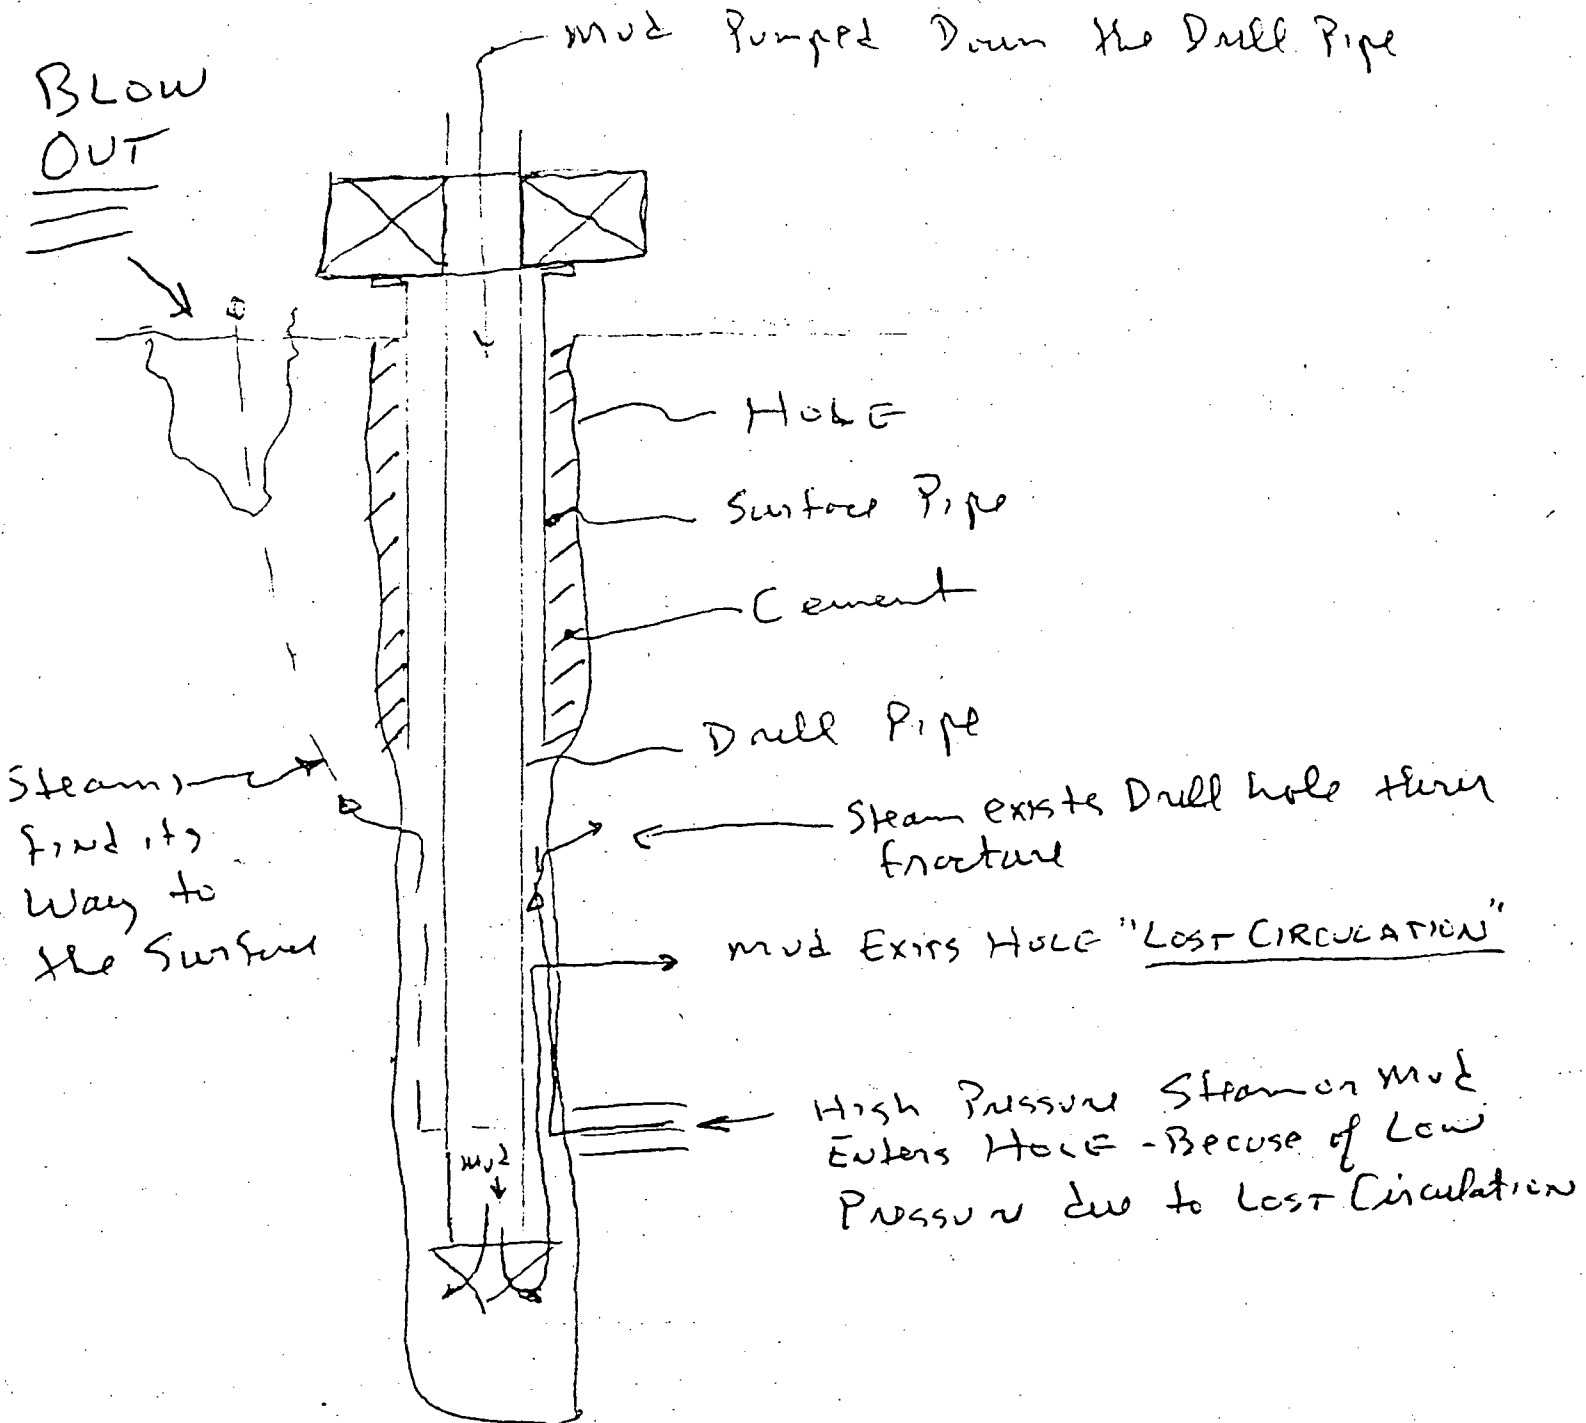 Mud Pumped Down the Drill Pipe
BLOW
OUT
HOLE
Surface Pipe
Cement
Drill Pipe
Steam
find its
Way to
the Surface
Steam exists Drill hole thru
fracture
Mud Exits HOLE "LOST CIRCULATION"
High Pressure Steam or Mud
Enters HOLE - Becuse of Low
Pressure due to LOST Circulation
Mud